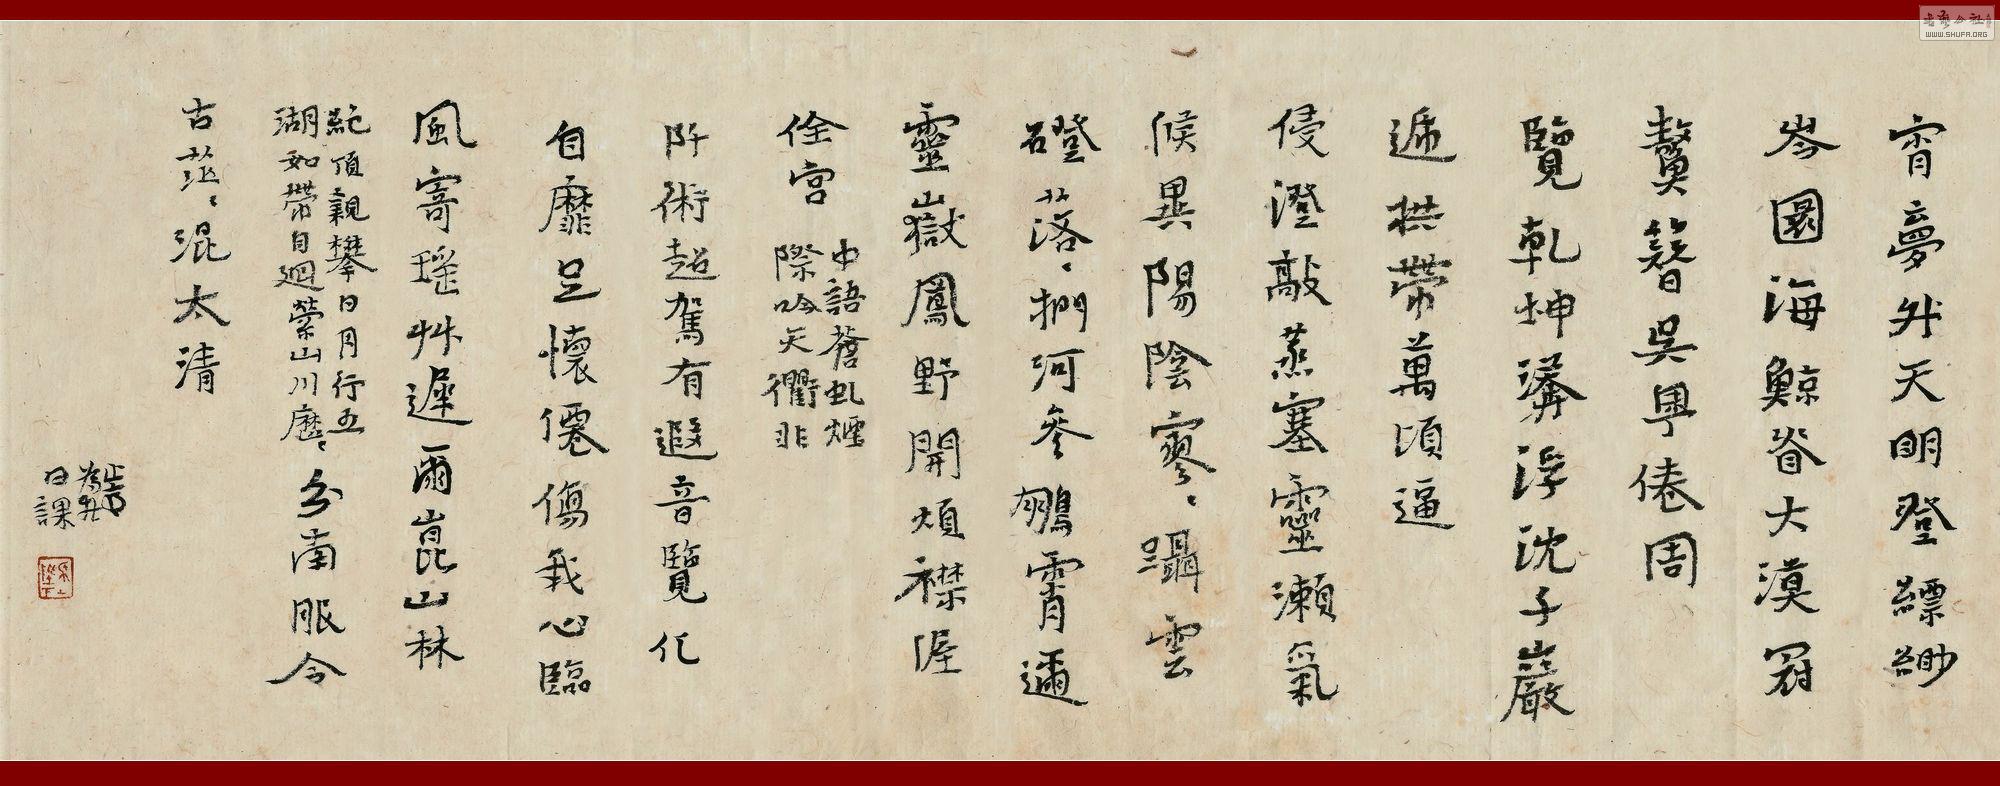 宵夢升天明登縹緲
岑圜海鯨脊大漠冠
鼇簪吳粵倦周
覽乾坤溝浮沈子巖
遞拱帶萬頃逼
侵澄敲蒸塞靈瀨氣
候異陽陰寥〻躡雲
磴落〻捫河參鵬霄邇
靈嶽鳳野開煩襟偓
佺宮
中語蒼虬煙
際吟天衢非
阡術超駕有遐音覽化
自靡足懷僊傷我心臨
風寄瑤艸遲爾崑山林
絕頂親攀日月行五
湖如帶自迴縈山川歷〻分南服今
古茫〻混太清
日課
书法公社
WWW.SHUFA.ORG